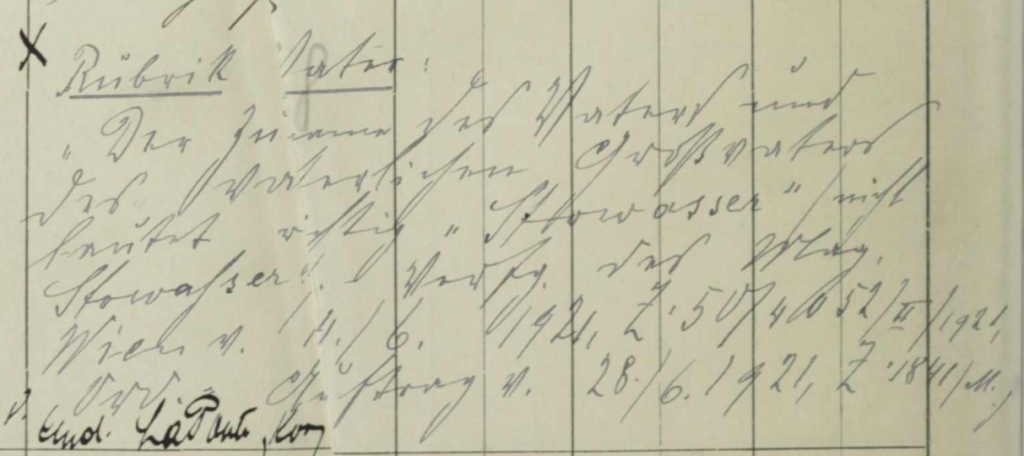 X
Rubrik Vater:
"Der Zuname des Vaters und
des väterlichen Großvaters
lautet richtig "Stowasser" (nicht
Stowaßer". Verfg. des Mag.
Wien v. 4./6. 1921, Z. 50/4052/II/1921,
Ord. Auftrag v. 28./6. 1921, Z. 1841/M.)
And.